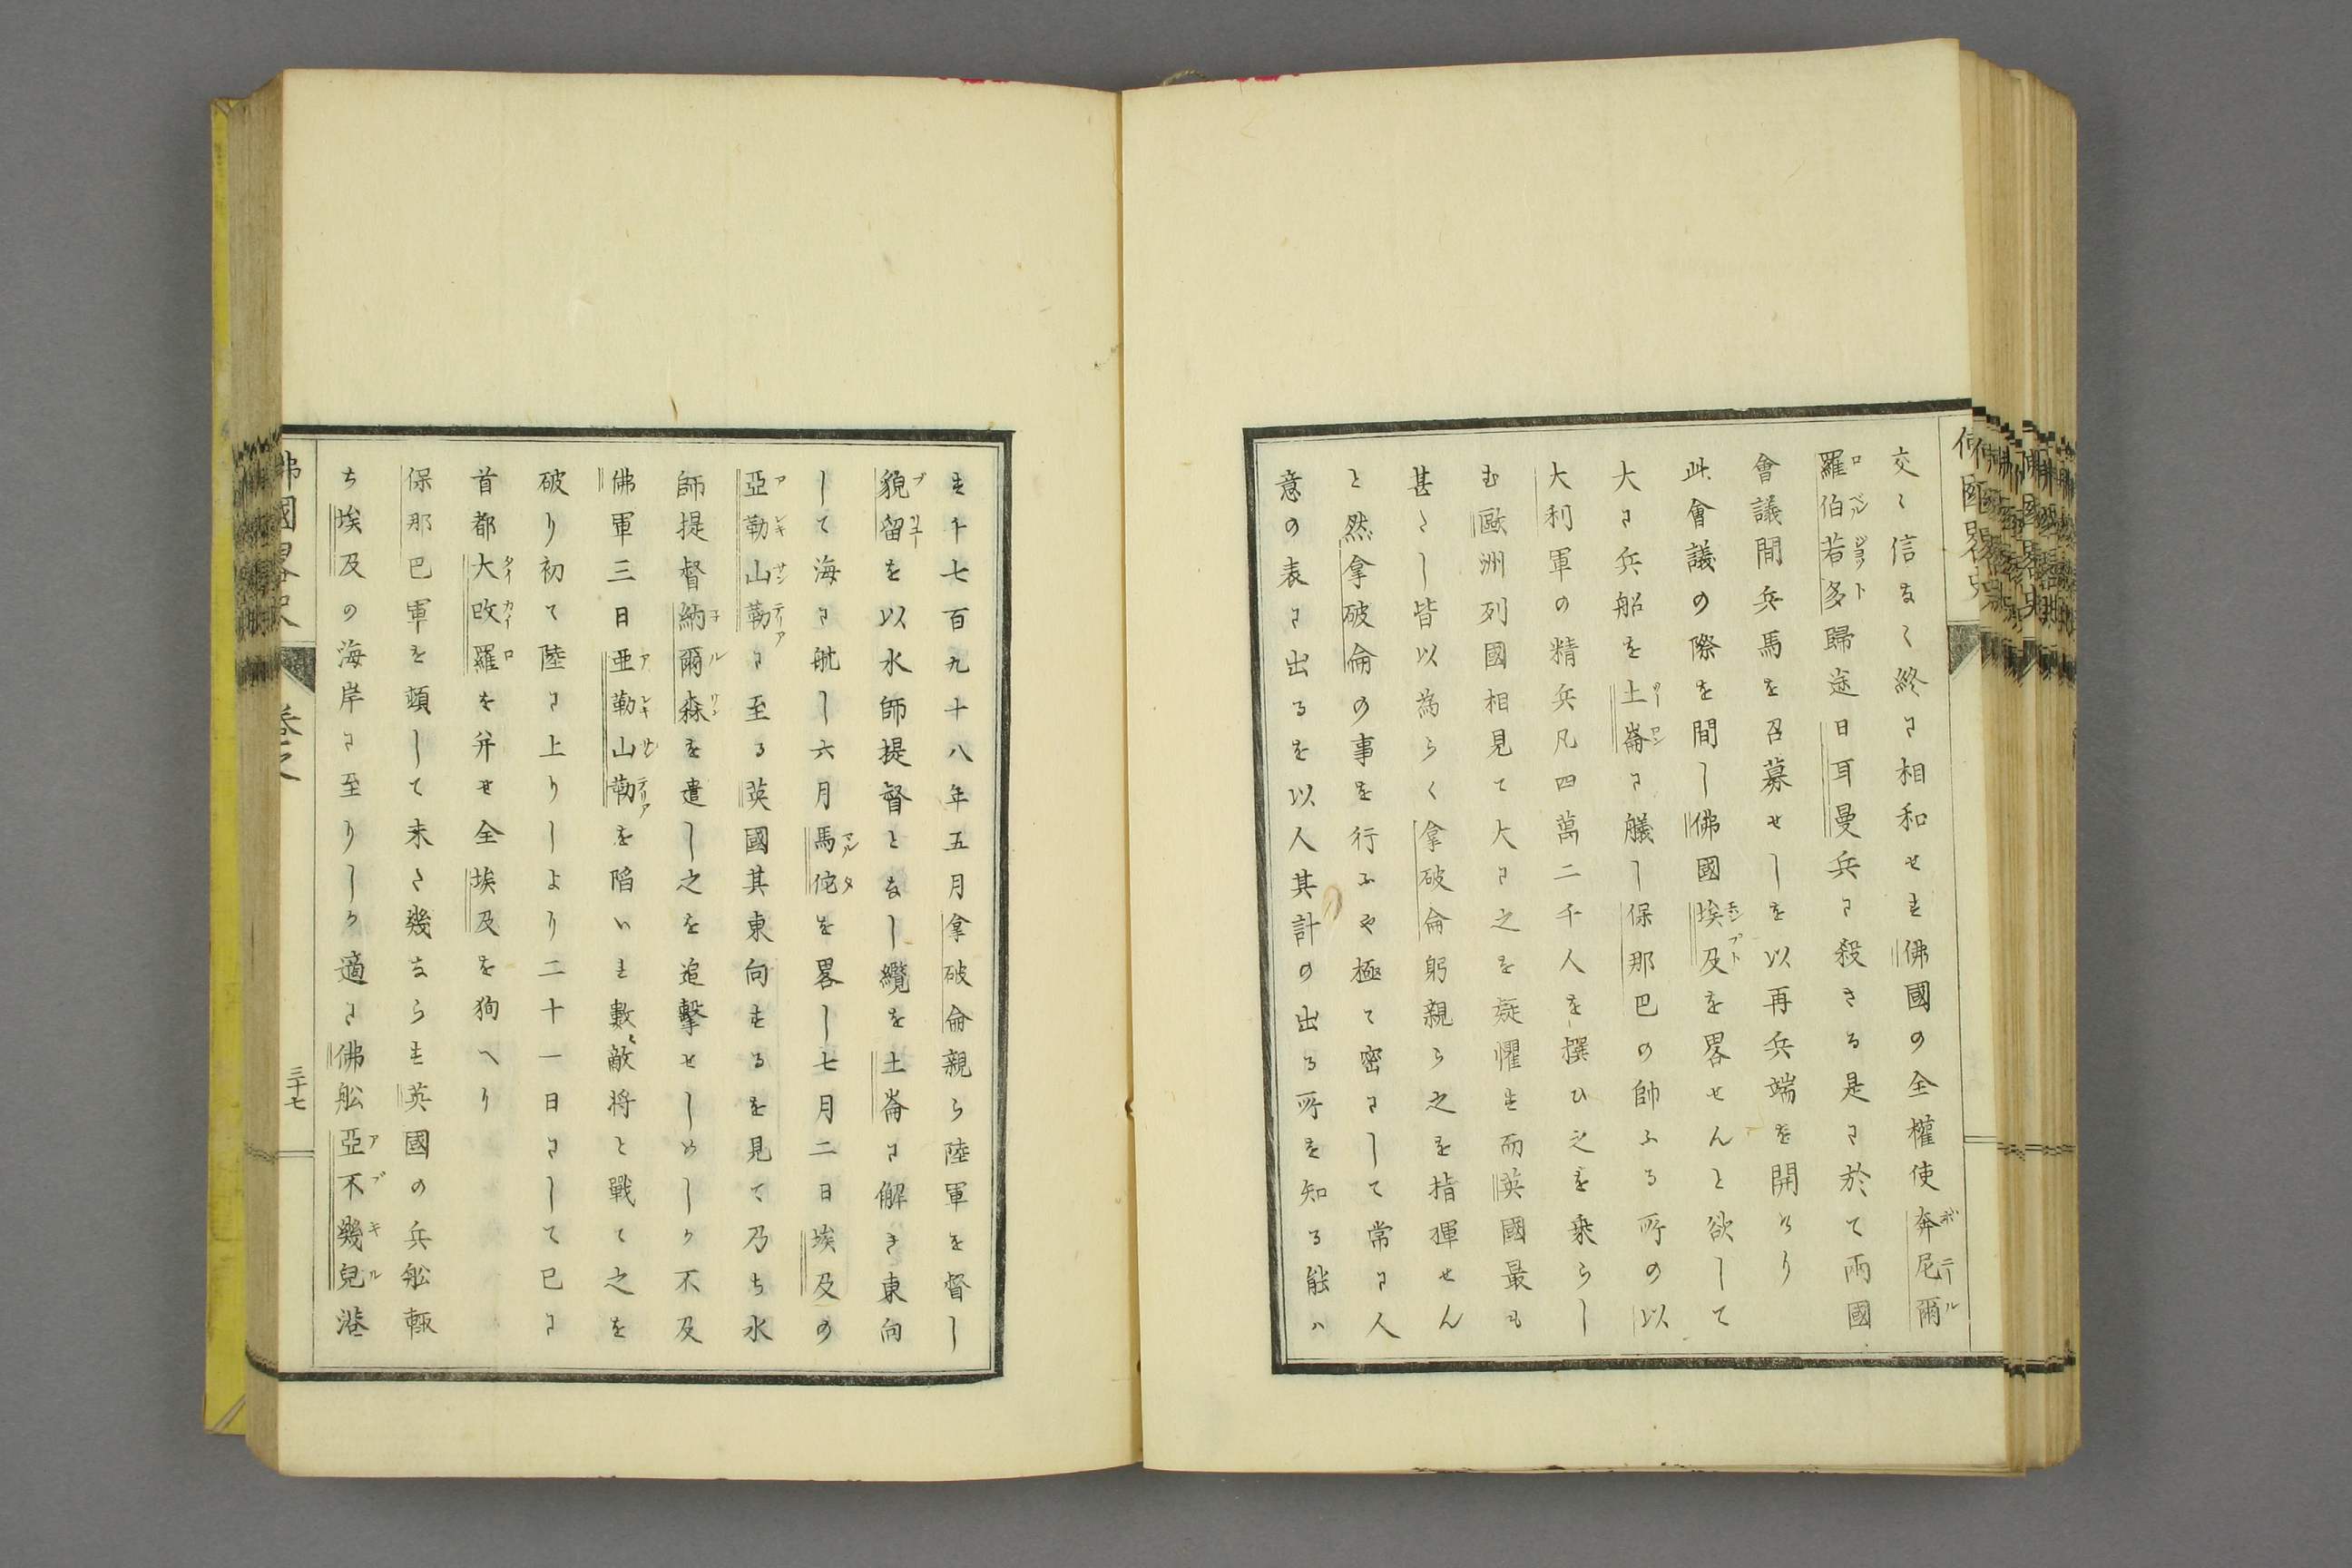 交〻信なく終に相和せす佛國の全權使奔尼爾
羅伯若多歸途日耳曼兵に殺さる是に於て兩國
會議間兵馬を召募せしを以再兵端を開けり
此會議の際を間し佛國埃及を畧せんと欲して
大に兵船を土崙に艤し保那巴の帥ふる所の以
大利軍の精兵凡四萬二千人を撰ひ之を乘らし
む歐洲列國相見て大に之を疑懼す而英國最も
甚たし皆以為らく拿破侖躬親ら之を指揮せん
と然拿破侖の事を行ふや極て密にして常に人
意の表に出るを以人其計の出る所を知る能ハ
す千七百九十八年五月拿破侖親ら陸軍を督し
貌留を以水師提督となし纜を土崙に解き東向
して海に航し六月馬佗を畧し七月二日埃及の
亞勒山勒に至る英國其東向するを見て乃ち水
師提督納爾森を遣し之を追擊せしめしか不及
佛軍三日亜勒山勒を陷いれ數〻敵将と戰て之を
破り初て陸に上りしより二十一日にして已に
首都大改羅を并せ全埃及を狥へり
保那巴軍を頓して未た幾ならす英國の兵舩輙
ち埃及の海岸に至りしか適に佛舩亞不幾兒港
佛國畧史
三十七